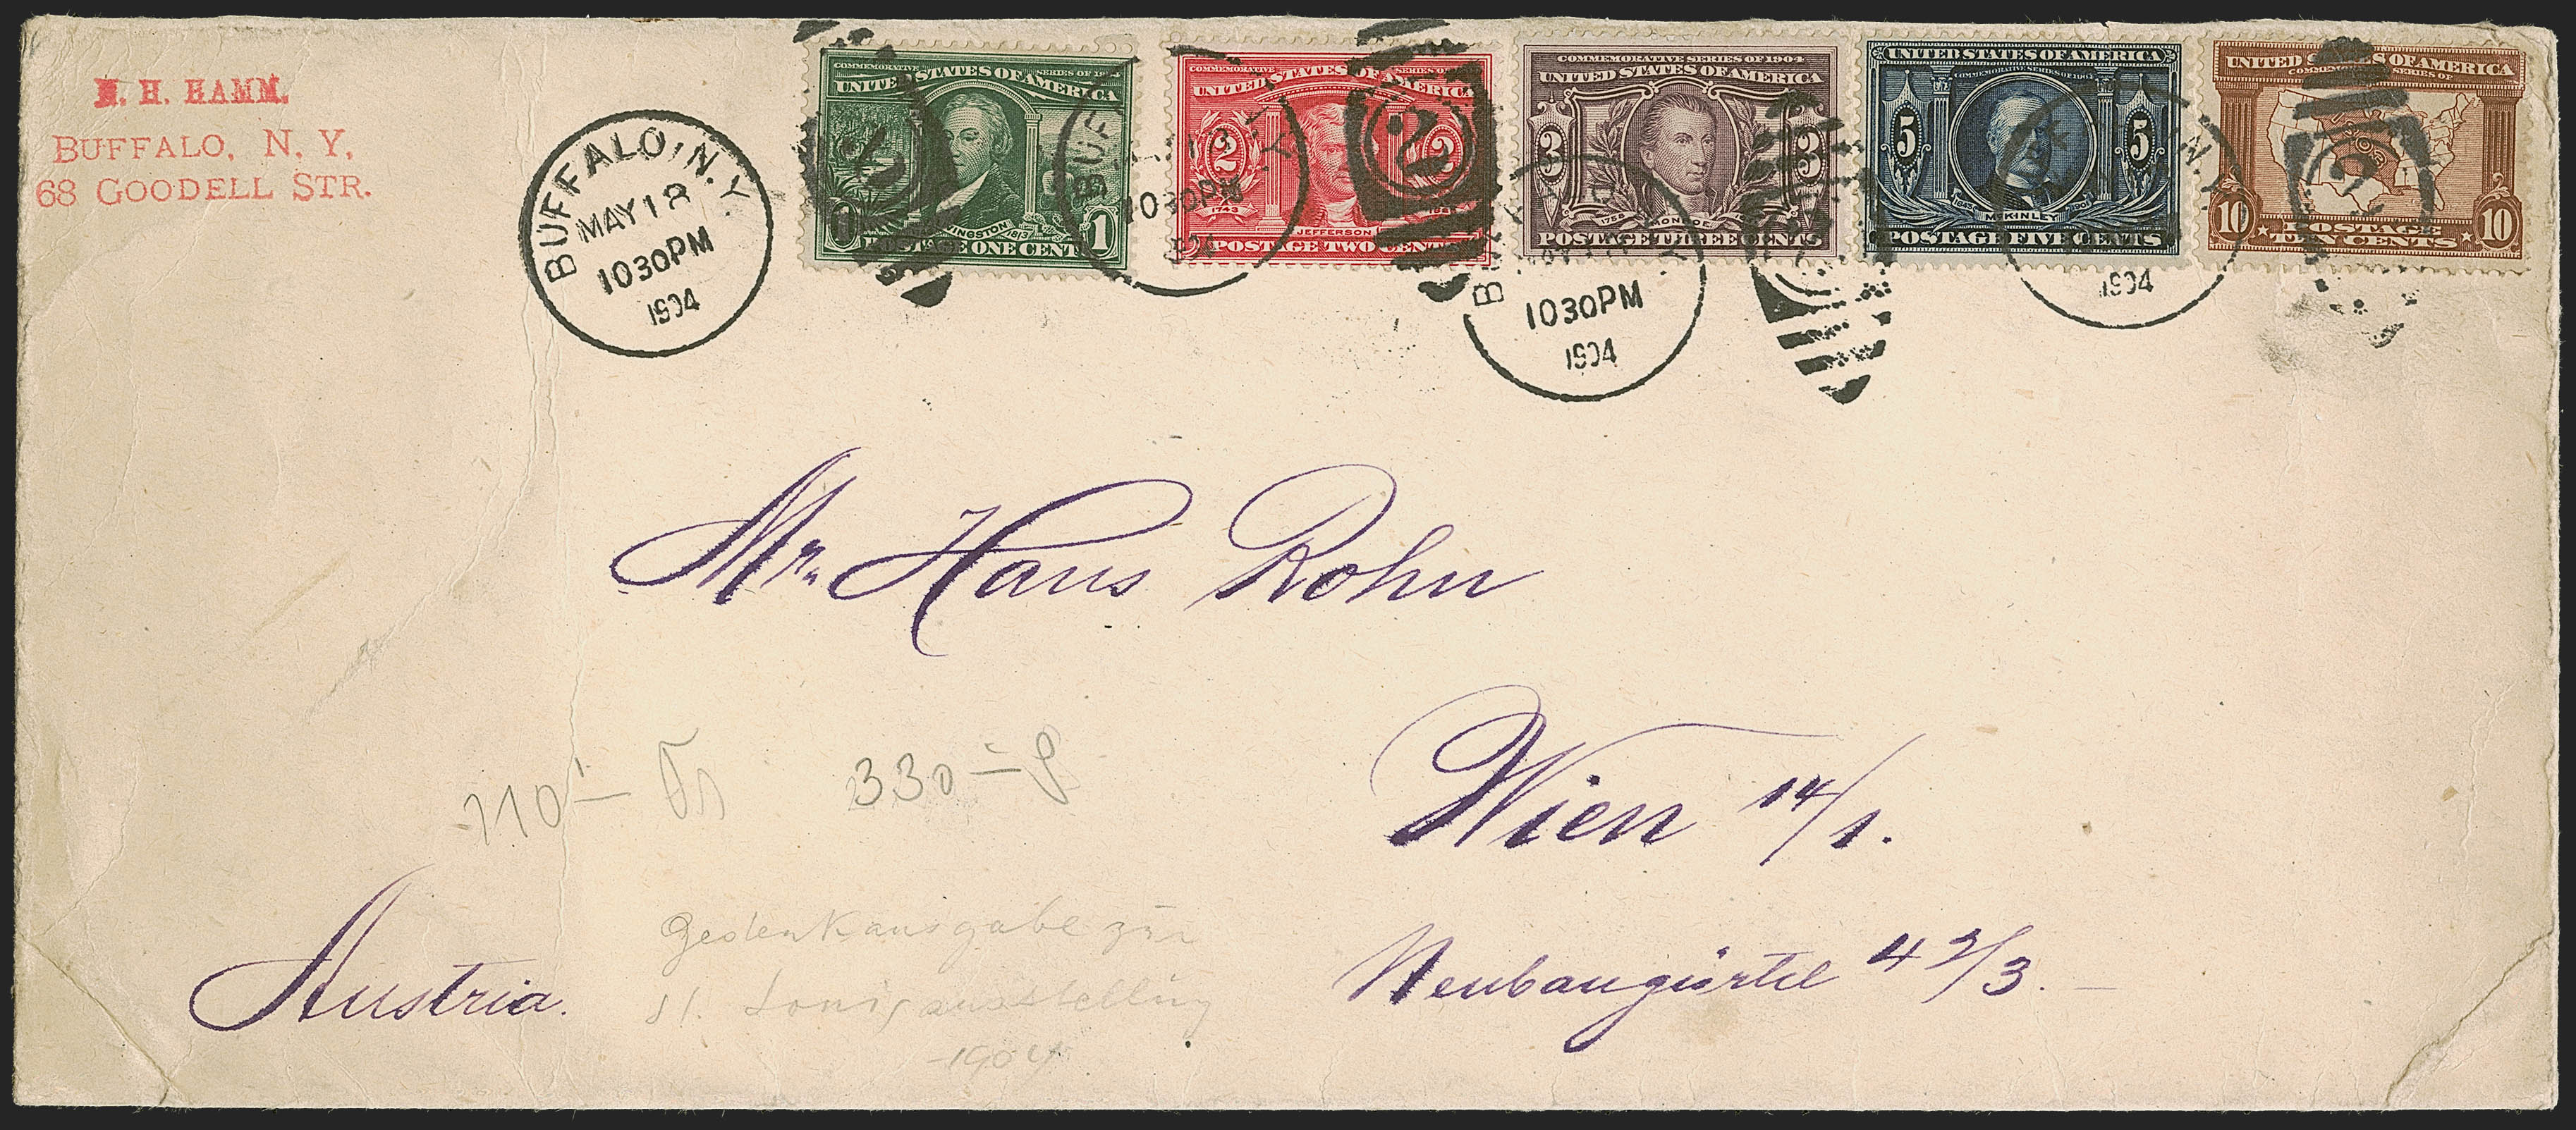 H. HAMM.
BUFFALO, N. Y.
68 GOODELL STR.
BUFFALO, N.Y.
MAY 18
10 30 PM
1904
COMMEMORATIVE SERIES OF 1904
UNITED STATES OF AMERICA
1 1
LIVINGSTON 1813
POSTAGE ONE CENT
BUF
10 30 PM
COMMEMORATIVE SERIES OF
UNITED STATES OF AMERICA
2 2
1743 JEFFERSON
POSTAGE TWO CENTS
2
COMMEMORATIVE SERIES OF 1904
UNITED STATES OF AMERICA
3 3
1758 MONROE
POSTAGE THREE CENTS
10 30 PM
1904
UNITED STATES OF AMERICA
COMMEMORATIVE SERIES OF 1904
5 5
1843 McKINLEY 1901
POSTAGE FIVE CENTS
N.Y.
1904
UNITED STATES OF AMERICA
COMMEMORATIVE SERIES OF
1803
10 10
POSTAGE
TEN CENTS
2
Mr. Hans Rohn
Wien 14/1.
Neubaugürtel 42/3.
Austria.
110 –
330 –
Gedenkausgabe zur
St. Louis ausstellung
1904